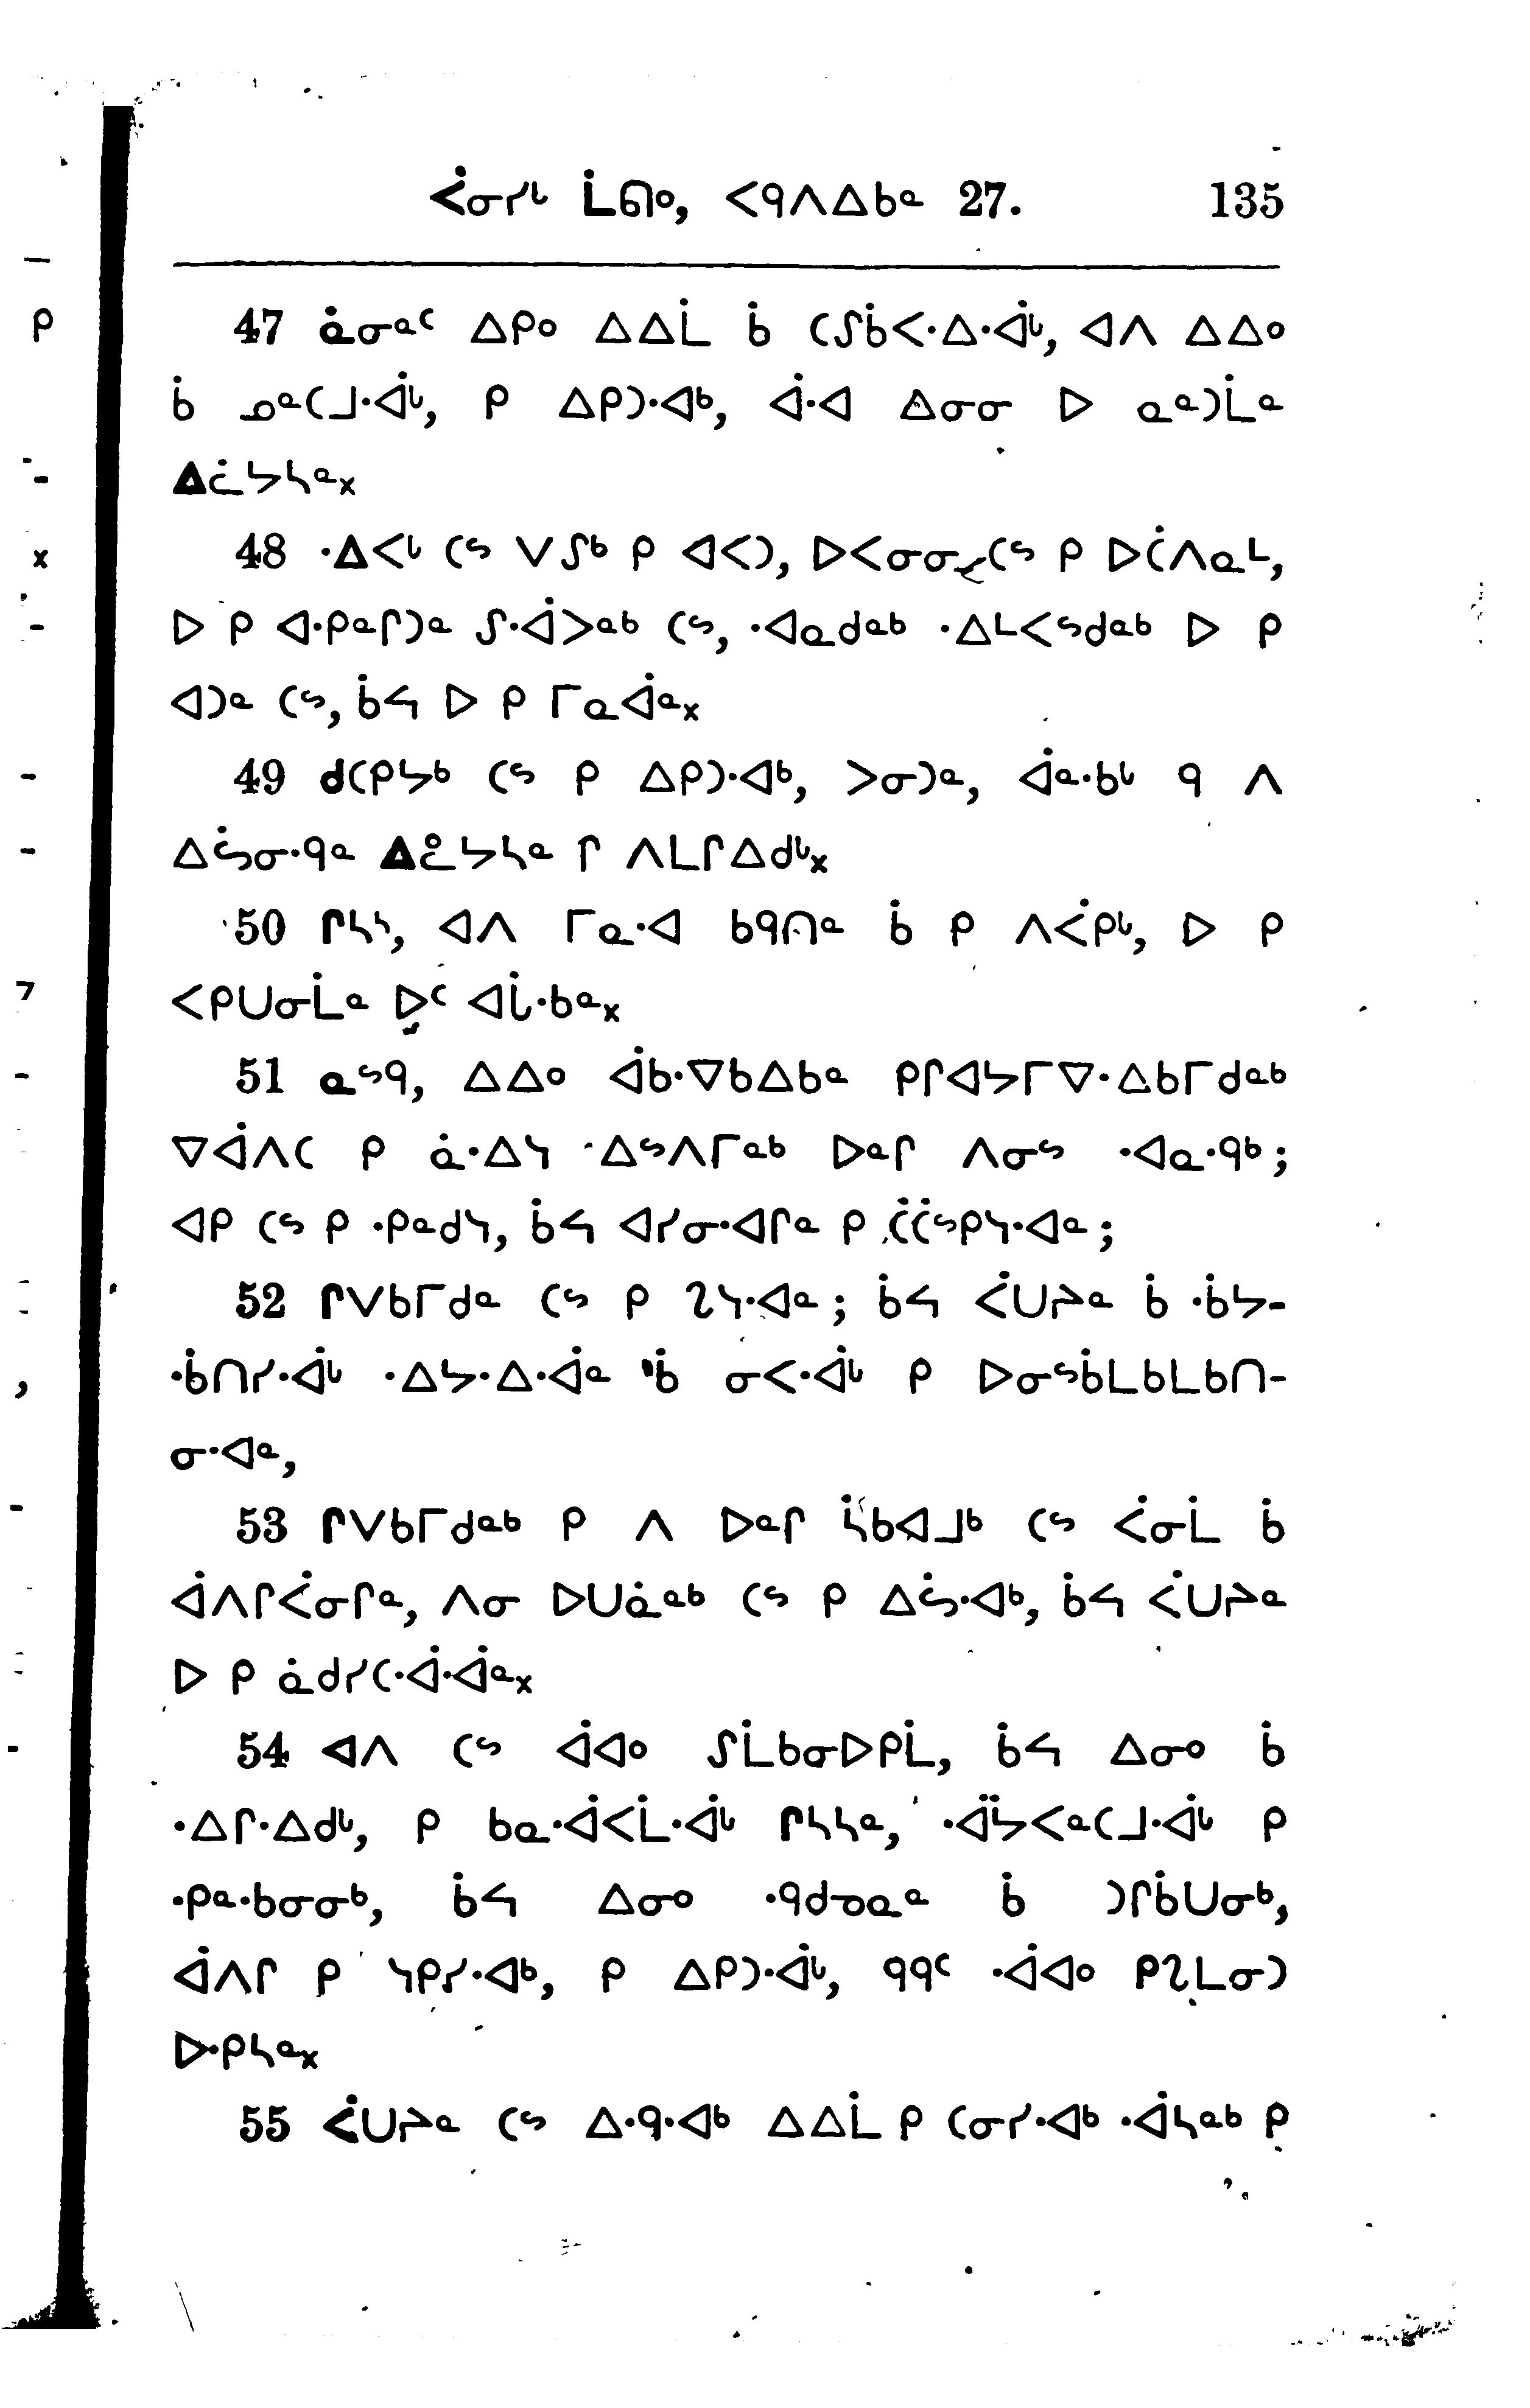 ᐹᓂᓯᒡ ᒫᖠᐤ, ᐸᑫᐱᐃᑲᓐ 27. 135
47 ᓈᓂᓐᑦ ᐃᑭᐤ ᐃᐃᒫ ᑳ ᑕᔑᑳᐸᐧᐃᐧᐋᒡ, ᐊᐱ ᐃᐃᐤ
ᑳ ᓄᓐᑕᒧᐧᐋᒡ, ᑭ ᐃᑭᑐᐧᐊᒃ, ᐋᐧᐊ ᐃᓂᓂ ᐅ ᓇᓐᑐᒫᓐ
ᐃᓛᔭᓴᓐ᙮
48 ᐧᐃᐸᒡ ᑕᔥ ᐯᔑᒃ ᑭ ᐊᐸᑐ, ᐅᐸᓂᓂ ᑕᔥ ᑭ ᐅᑖᐱᓇᒻ,
ᐅ ᑭ ᐊᐧᑭᓐᒋᑐᓐ ᔑᐧᐋᐳᓐᒃ ᑕᔥ, ᐧᐊᓇᑯᓐᒃ ᐧᐃᒻᐸᔥᑯᓐᒃ ᐅ ᑭ
ᐊᑐᓐ ᑕᔥ, ᑳᔦ ᐅ ᑭ ᒥᓇᐋᓐ᙮
49 ᑯᑕᑭᔭᒃ ᑕᔥ ᑭ ᐃᑭᑐᐧᐊᒃ, ᐳᓂᑐᓐ, ᐋᓐᐧᑲᒡ ᑫ ᐱ
ᐃᔖᓂᐧᑫᓐ ᐃᓛᔭᓴᓐ ᒋ ᐱᒪᒋᐃᑯᒡ᙮
50 ᒋᓴᔅ, ᐊᐱ ᒥᓇᐧᐊ ᑲᑫᑎᓐ ᑳ ᑭ ᐱᐹᑭᒡ, ᐅ ᑭ
ᐸᑭᑌᓂᒫᓐ ᐅᑦ ᐊᒑᐧᑲᓐ᙮
51 ᓇᔥᑫ, ᐃᐃᐤ ᐋᑲᐧᐁᑲᐃᑲᓐ ᑭᒋᐊᔭᒥᐁᐧᐃᑲᒥᑯᓐᒃ
ᐁᐋᐱᑕ ᑭ ᓈᐧᐃᓭ ᐃᔥᐱᒥᓐᒃ ᐅᓐᒋ ᐱᓂᔥ ᐧᐊᓇᐧᑫᒃ;
ᐊᑭ ᑕᔥ ᑭ ᐧᑭᓐᑯᓭ, ᑳᔦ ᐊᓯᓂᐧᐊᒋᓐ ᑭ ᑖᑖᔥᑭᓭᐧᐊᓐ;
52 ᒋᐯᑲᒥᑯᓐ ᑕᔥ ᑭ ᔐᓭᐧᐊᓐ; ᑳᔦ ᐹᑌᔨᓐ ᑳ ᐧᑳᔭ-
ᐧᑳᑎᓯᐧᐋᒡ ᐧᐃᔭᐧᐃᐧᐋᓐ ᑳ ᓂᐸᐧᐋᒡ ᑭ ᐅᓂᔥᑳᒪᑲᒪᑲᑎ-
ᓂᐧᐊᓐ,
53 ᒋᐯᑲᒥᑯᓐᒃ ᑭ ᐱ ᐅᓐᒋ ᓵᑲᐊᒧᒃ ᑕᔥ ᐹᓂᒫ ᑳ
ᐋᐱᒋᐹᓂᒋᓐ, ᐱᓂ ᐅᑌᓈᓐᒃ ᑕᔥ ᑭ ᐃᔖᐧᐊᒃ, ᑳᔦ ᐹᑌᔨᓐ
ᐅ ᑭ ᓈᑯᓯᑕᐧᐋᐧᐋᓐ᙮
54 ᐊᐱ ᑕᔥ ᐋᐊᐤ ᔑᒫᑲᓂᐅᑭᒫ, ᑳᔦ ᐃᓂᐤ ᑳ
ᐧᐃᒋᐧᐃᑯᒡ, ᑭ ᑲᓇᐧᐋᐸᒫᐧᐋᒡ ᒋᓴᓴᓐ, ᐧᐋᔭᐸᓐᑕᒧᐧᐋᒡ ᑭ
ᐧᑭᓐᐧᑲᓂᓂᒃ, ᑳᔦ ᐃᓂᐤ ᐧᑫᑯᓀᓇᓐ ᑳ ᑐᒋᑳᑌᓂᒃ,
ᐋᐱᒋ ᑭ ᓭᑭᓯᐧᐊᒃ, ᑭ ᐃᑭᑐᐧᐋᒡ, ᑫᑫᑦ ᐧᐋᐊᐤ ᑭᔐᒪᓂᑐ
ᐅᐧᑭᓴᓐ᙮
55 ᐹᑌᔨᓐ ᑕᔥ ᐃᐧᑫᐧᐊᒃ ᐃᐃᒫ ᑭ ᑕᓂᓯᐧᐊᒃ ᐧᐋᓴᓐᒃ ᑭ